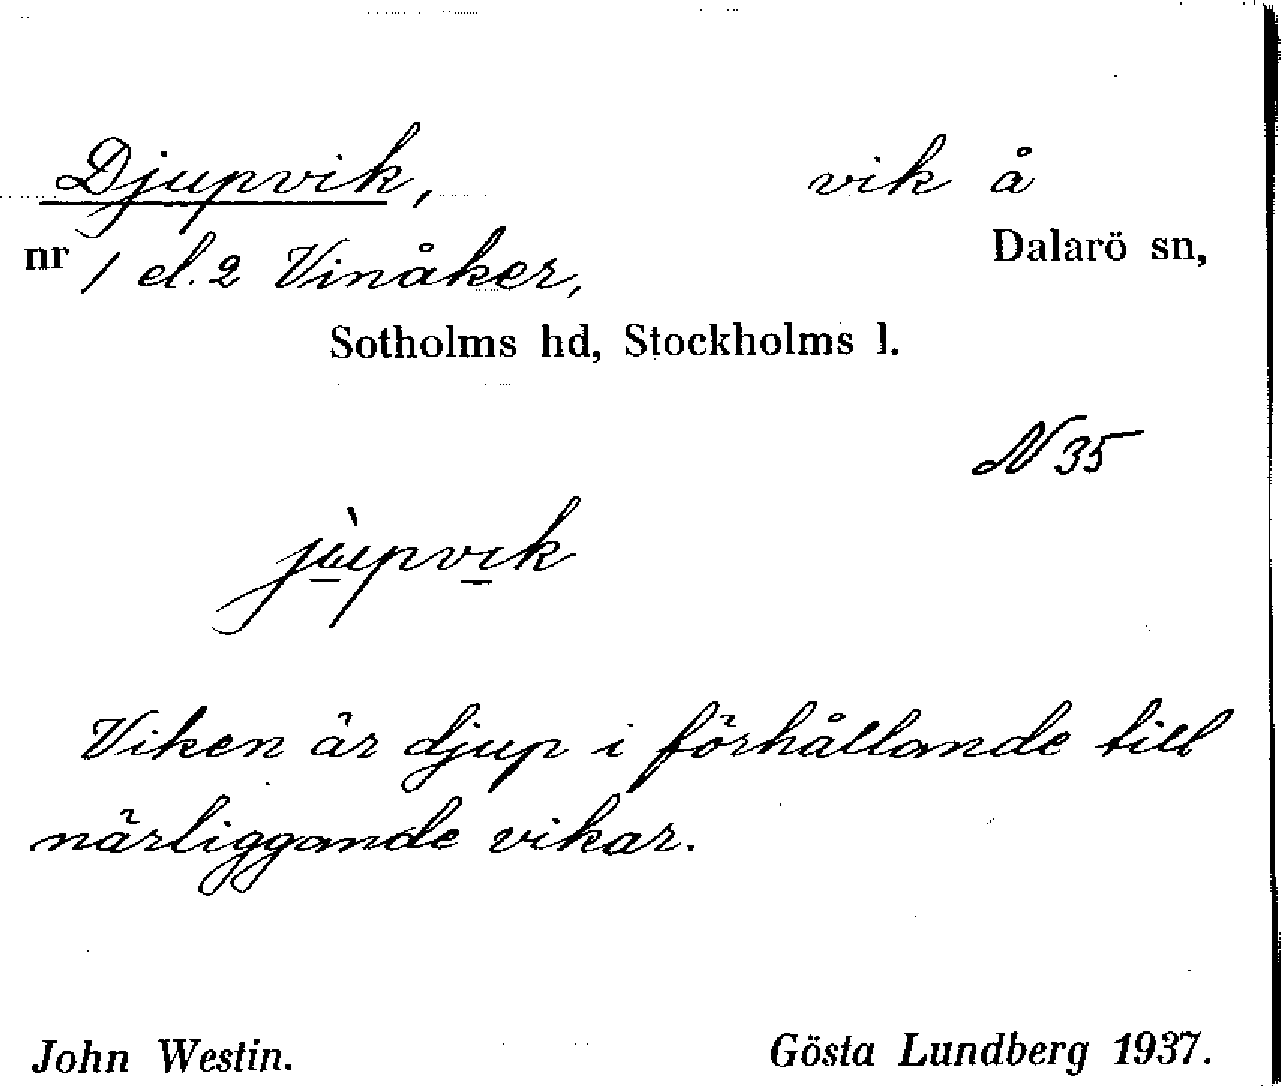 Djupvik, vik å
nr 1 el. 2 Vinåker, Dalarö sn,
Sotholms hd, Stockholms l.
N 35
jùpvik
Viken är djup i förhållande till
närliggande vikar.
John Westin. Gösta Lundberg 1937.